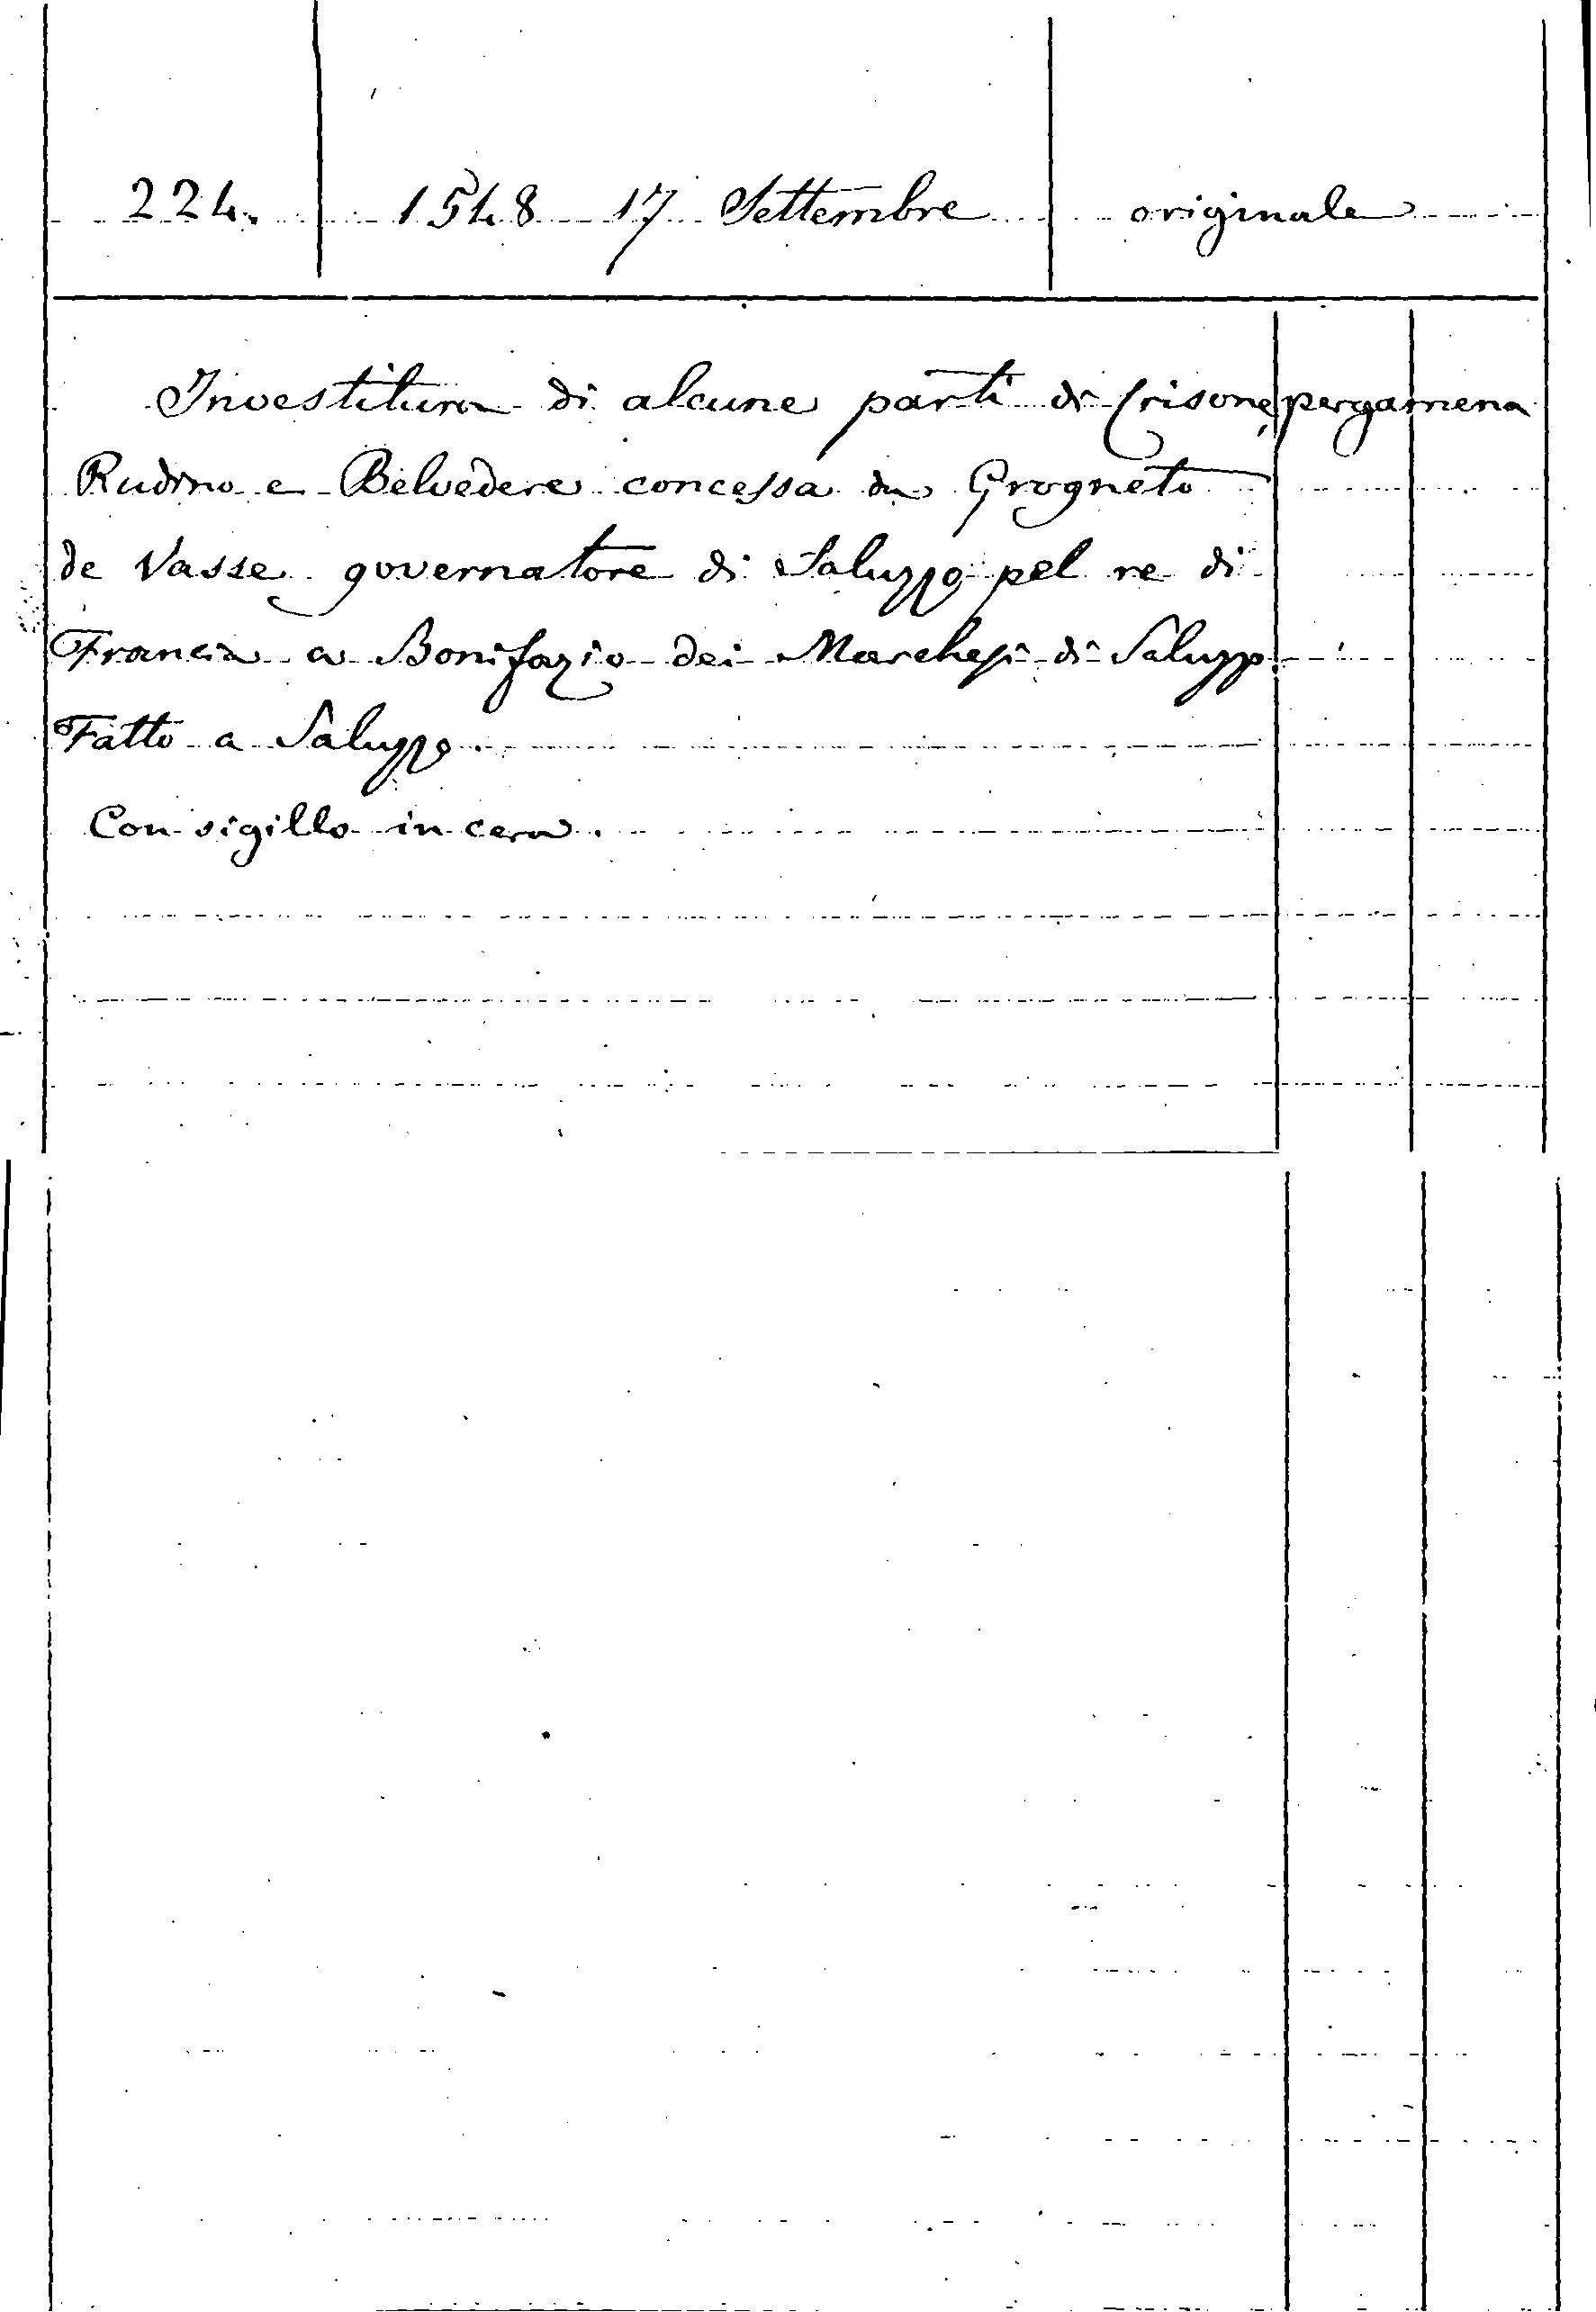 224. 1548 17 Settembre originale
Investitura di alcune parti di Crisone, pergamena
Rudino e Belvedere concessa da Grogneto
de Vasse governatore di Saluzzo pel re di
Francia a Bonifazio dei Marchesi di Saluzz.
Fatto a Saluzzo.
Con sigillo in cera.